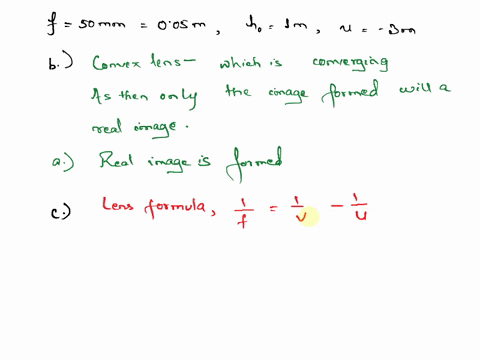 f = 50mm = 0.05m , h₀ = 1m , u = -3m
b.) Convex lens - which is converging
As then only the image formed will a
real image.
a.) Real image is formed
c.) Lens formula, 1/f = 1/v - 1/u